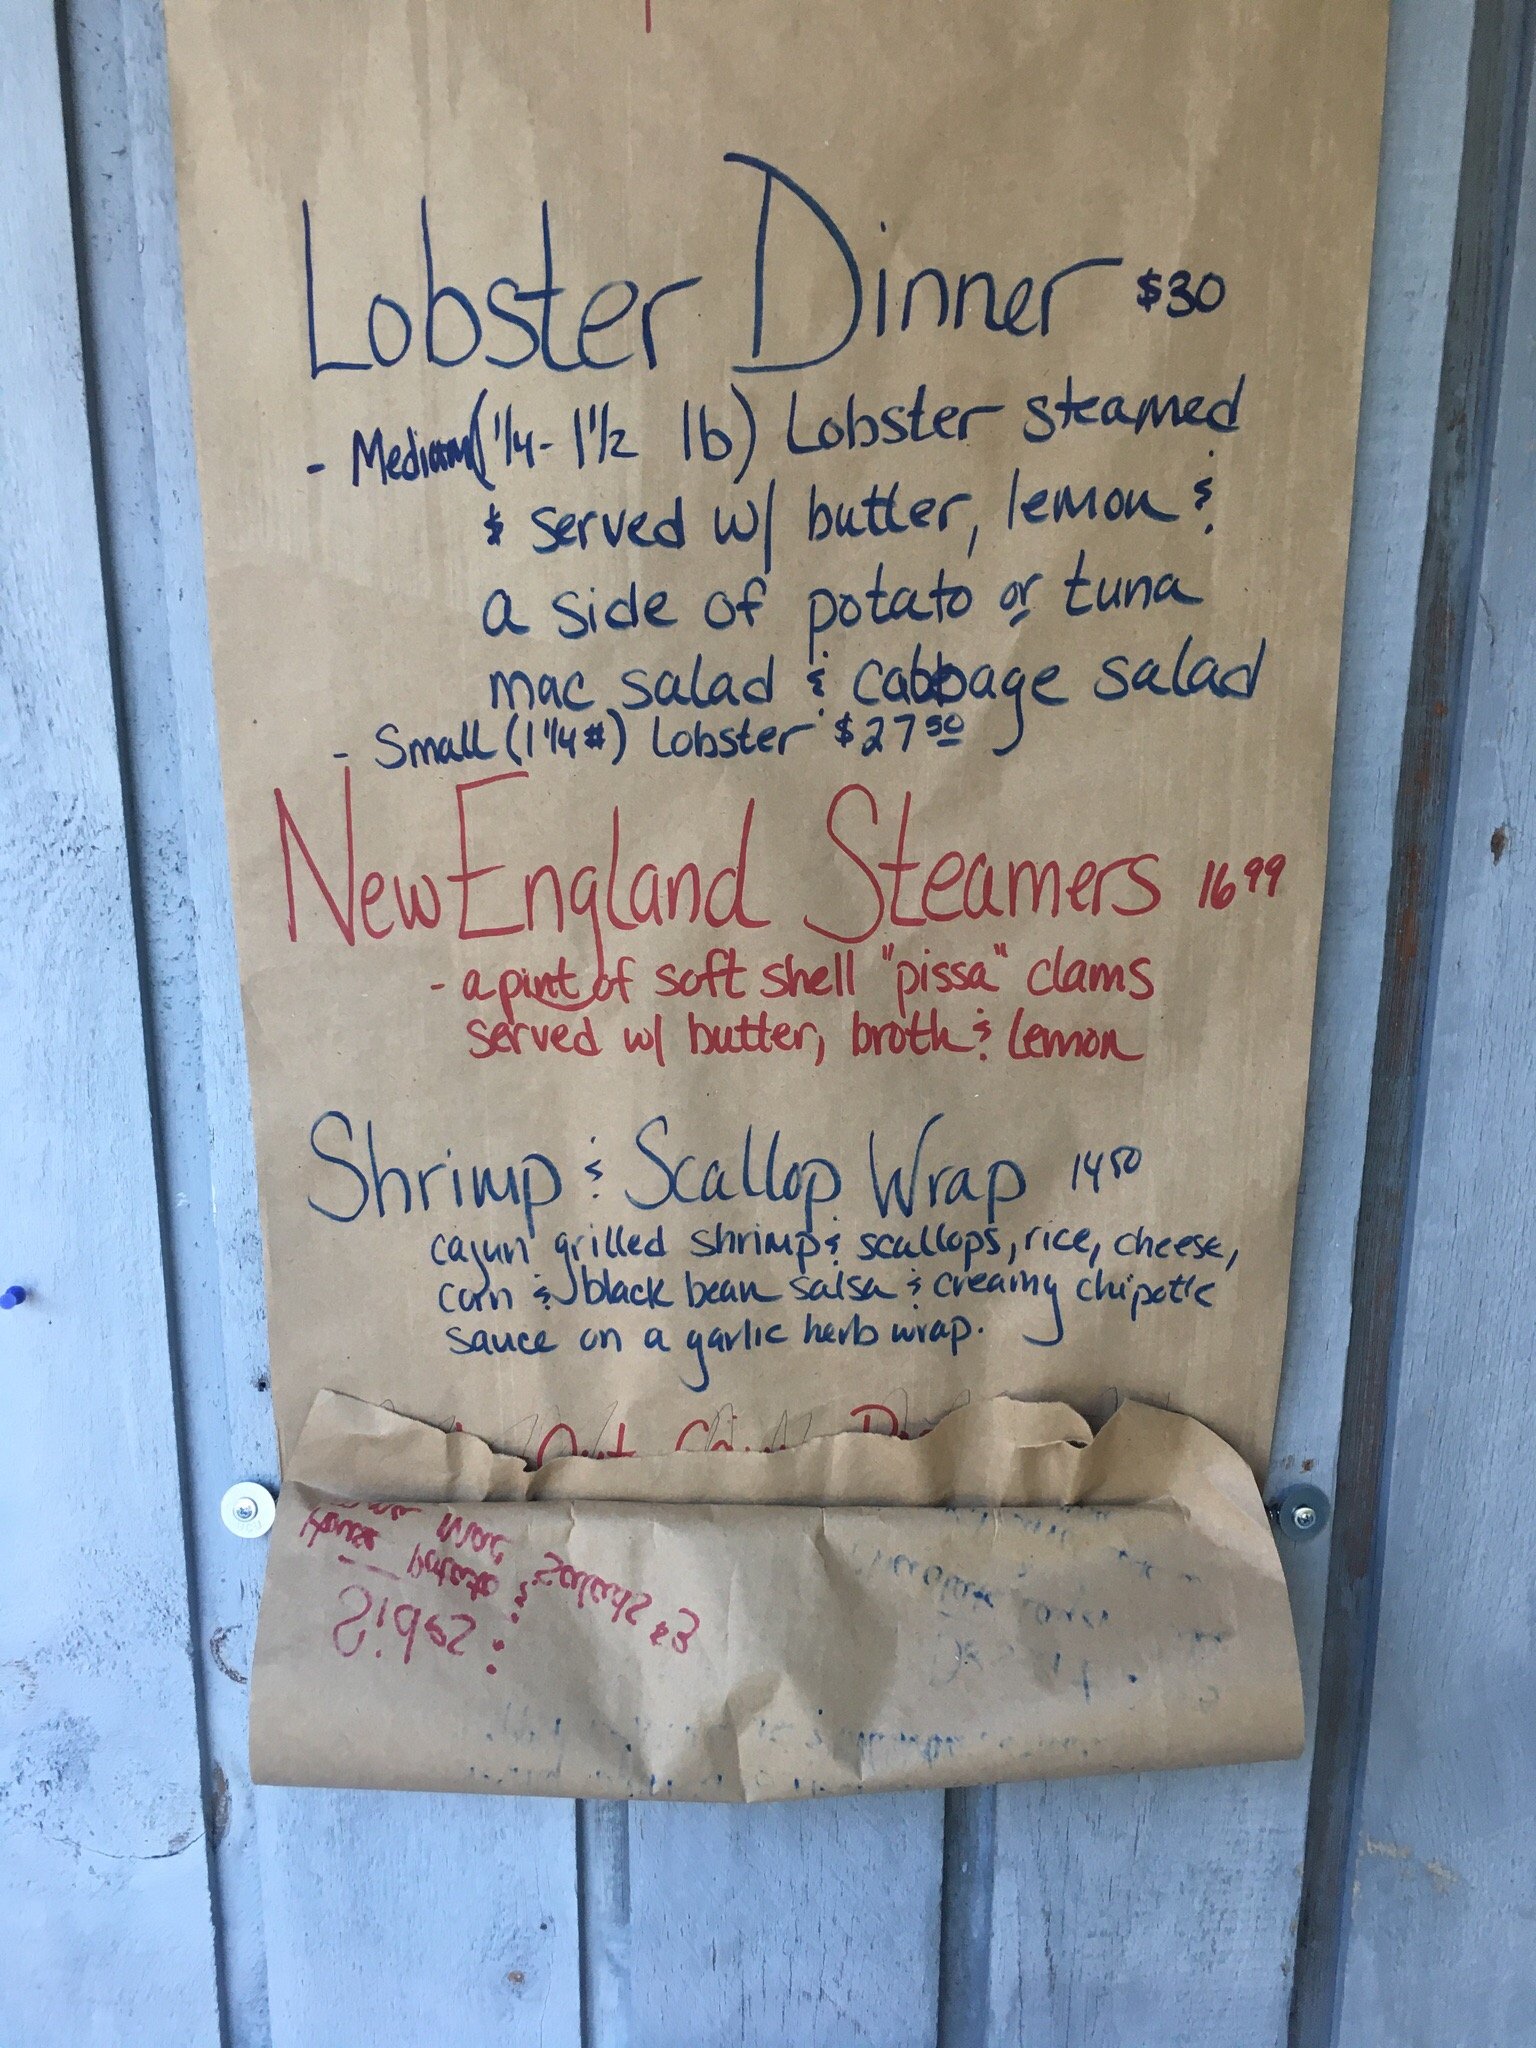 Lobster Dinner $30
- Medium (1/4 - 1 1/2 lb) Lobster steamed
& served w/ butter, lemon &
a side of potato or tuna
mac salad & cabbage salad
- Small (1 1/4 #) Lobster $27 50
New England Steamers 16 99
- a pint of soft shell "pissa" clams
served w/ butter, broth & lemon
Shrimp & Scallop Wrap 14 50
cajun grilled shrimp & scallops, rice, cheese,
corn & black bean salsa & creamy chipotle
sauce on a garlic herb wrap.
Sides:
potato &
mac salads $3